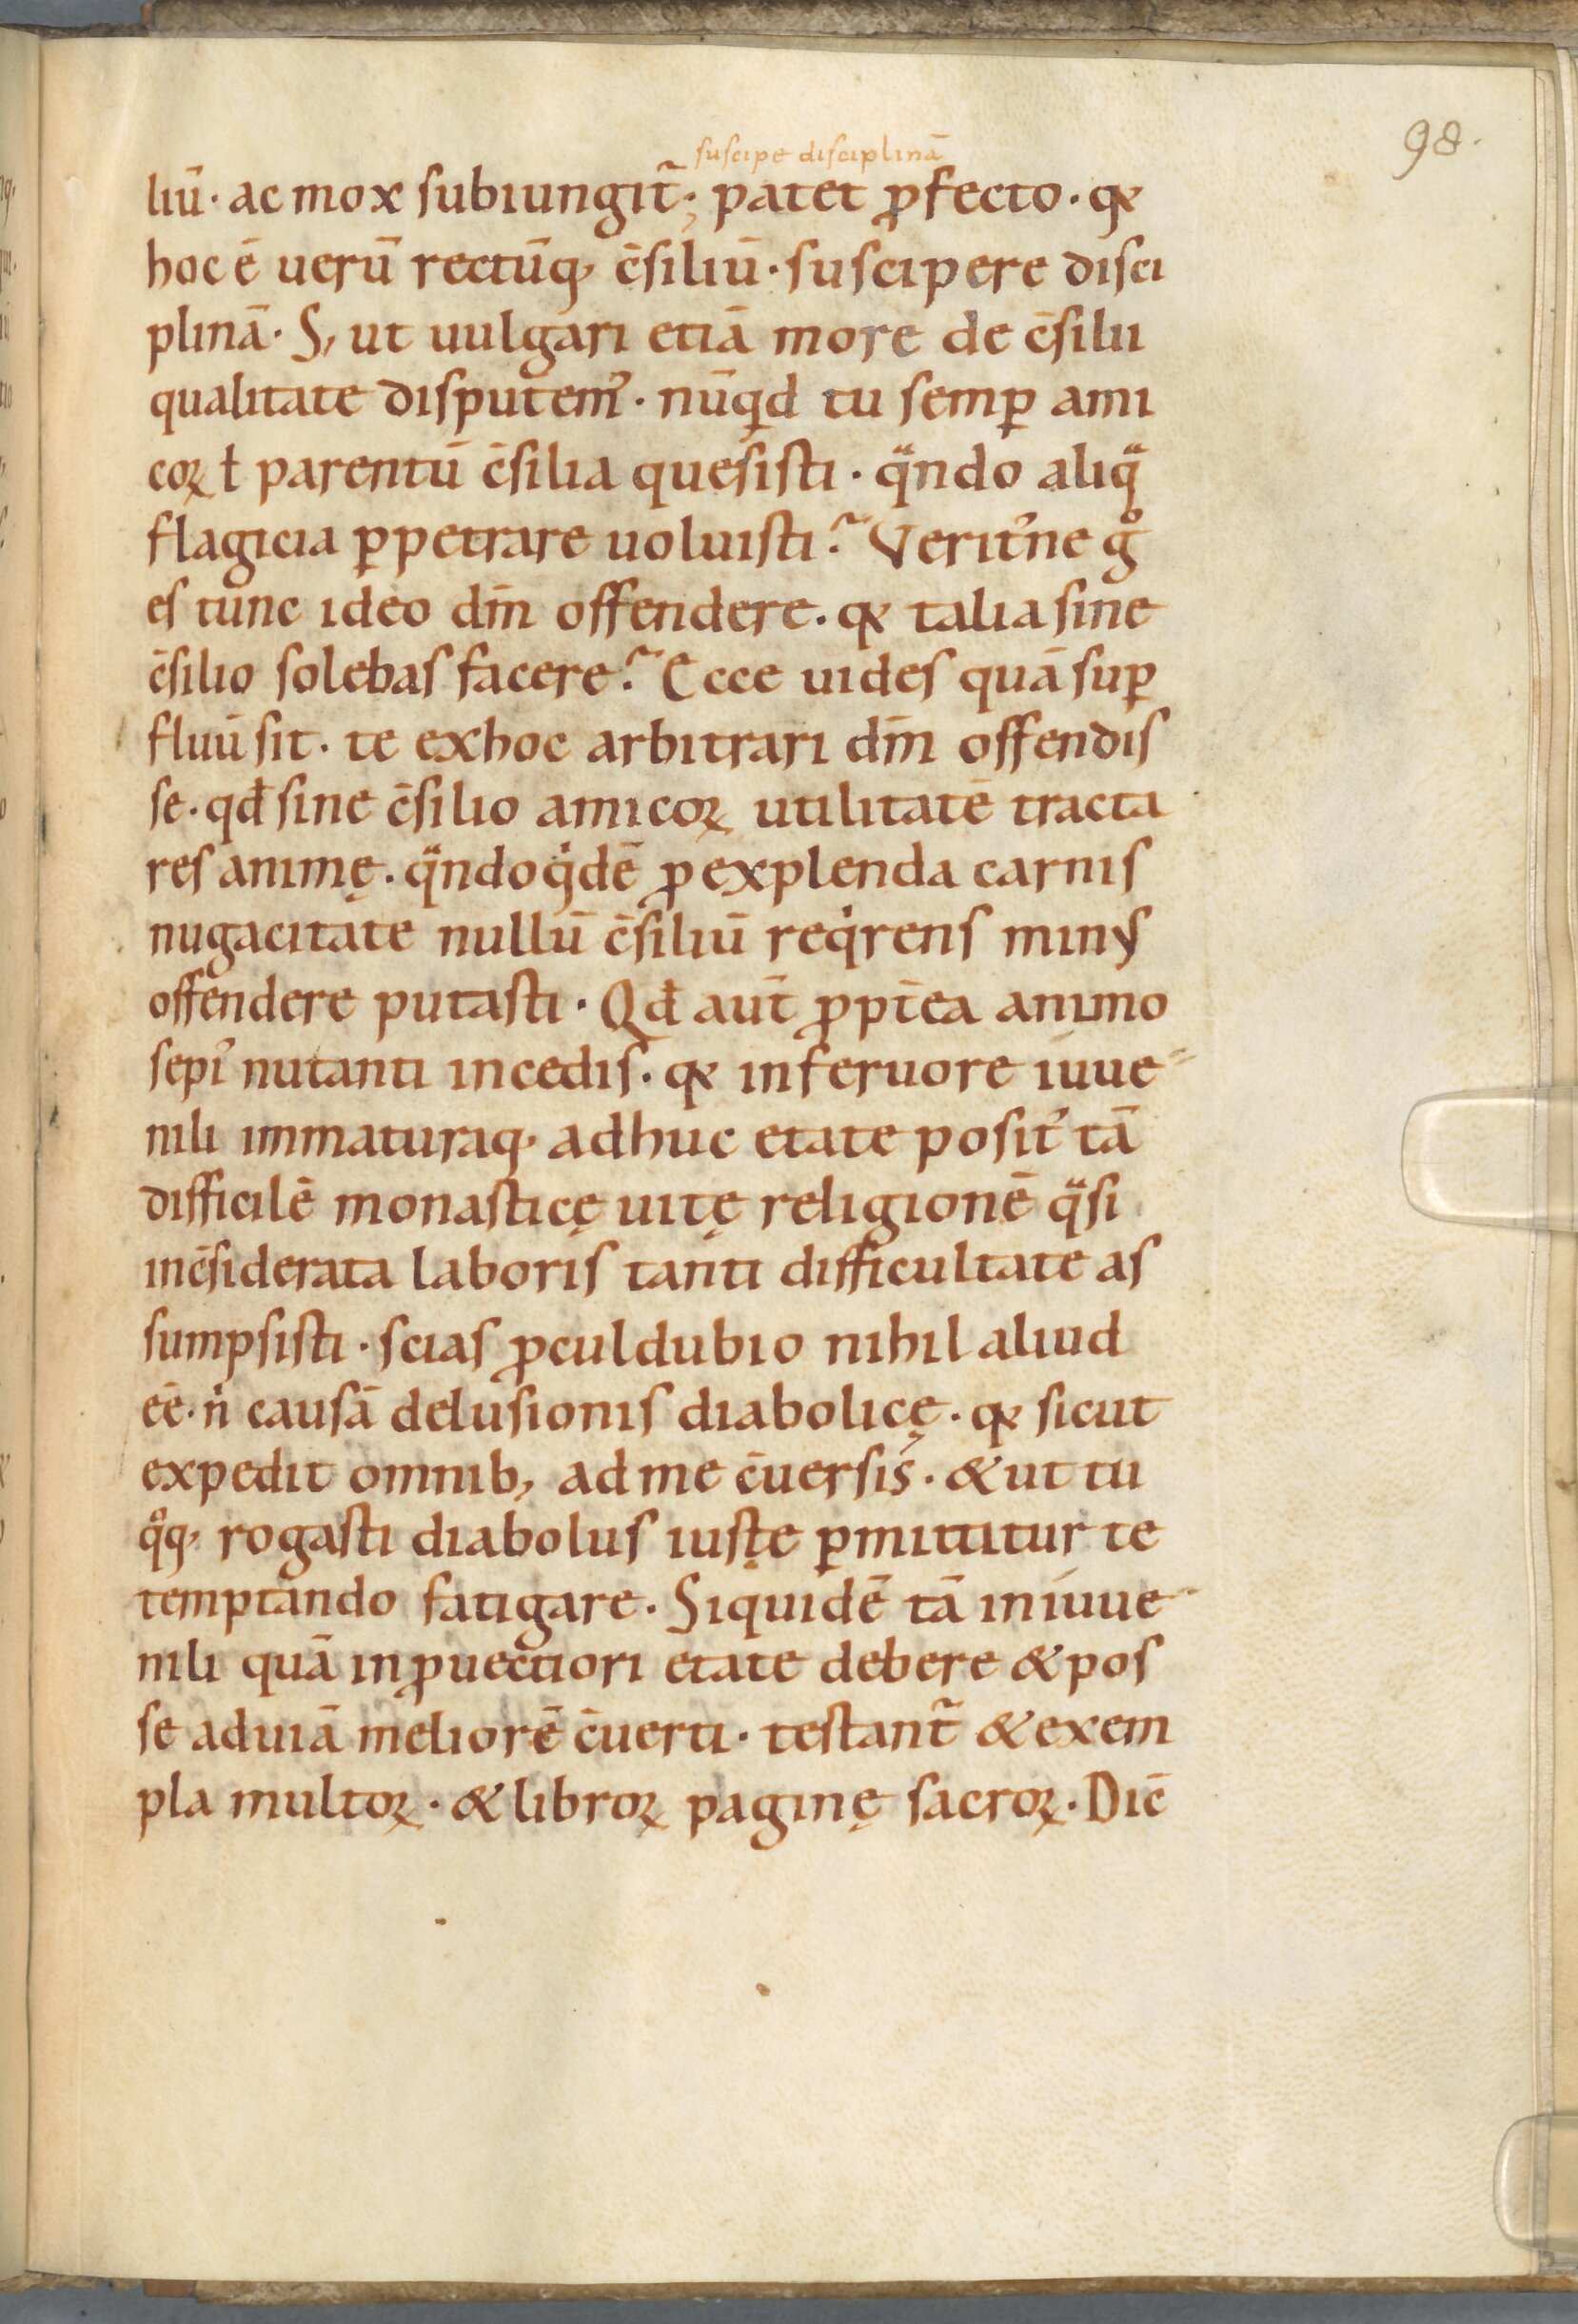 98.
suscipe disciplinā
liū· ac mox subiungit᷑; patet ꝓfecto· qꝛ
hoc ē uerū rectūq; c̄siliū· suscipere disci
plinā· S; ut uulgari etiā more de c̄silii
qualitate disputem᷒· nūqͥd tu semꝑ ami
coꝝ ł parentū c̄silia quesisti· qᷓndo aliqᷓ
flagicia ꝑpetrare uoluisti? Verit᷒ne gͦ
es tunc ideo dm̄ offendere· qꝛ talia sine
c̄silio solebas facere? Ecce uides quā suꝑ
fluū sit· te ex hoc arbitrari dm̄ offendis
se· qđ sine c̄silio amicoꝝ utilitatē tracta
res animę· qᷓndoqͥdē ꝓ explenda carnis
nugacitate nullū c̄siliū reqͥrens minus
offendere putasti· Qđ aut̄ ꝓpt̄ea animo
sepi᷒ nutanti incedis· qꝛ in feruore iuue
nili immaturaq; adhuc etate posit᷒ tā
difficilē monasticę uitę religionē qᷓsi
inc̄siderata laboris tanti difficultate as
sumpsisti· scias ꝓculdubio nihil aliud
eē· nͥ causā delusionis diabolicę· qꝛ sicut
expedit omnib; ad me c̄uersis· & ut tu
qͦq; rogasti diabolus iustę ꝑmittitur te
temptando fatigare· Siquidē tā in iuue
nili quā in ꝓuectiori etate debere & pos
se ad uiā meliorē c̄uerti· testant᷑ & exem
pla multoꝝ· & libroꝝ paginę sacroꝝ· Dic̄